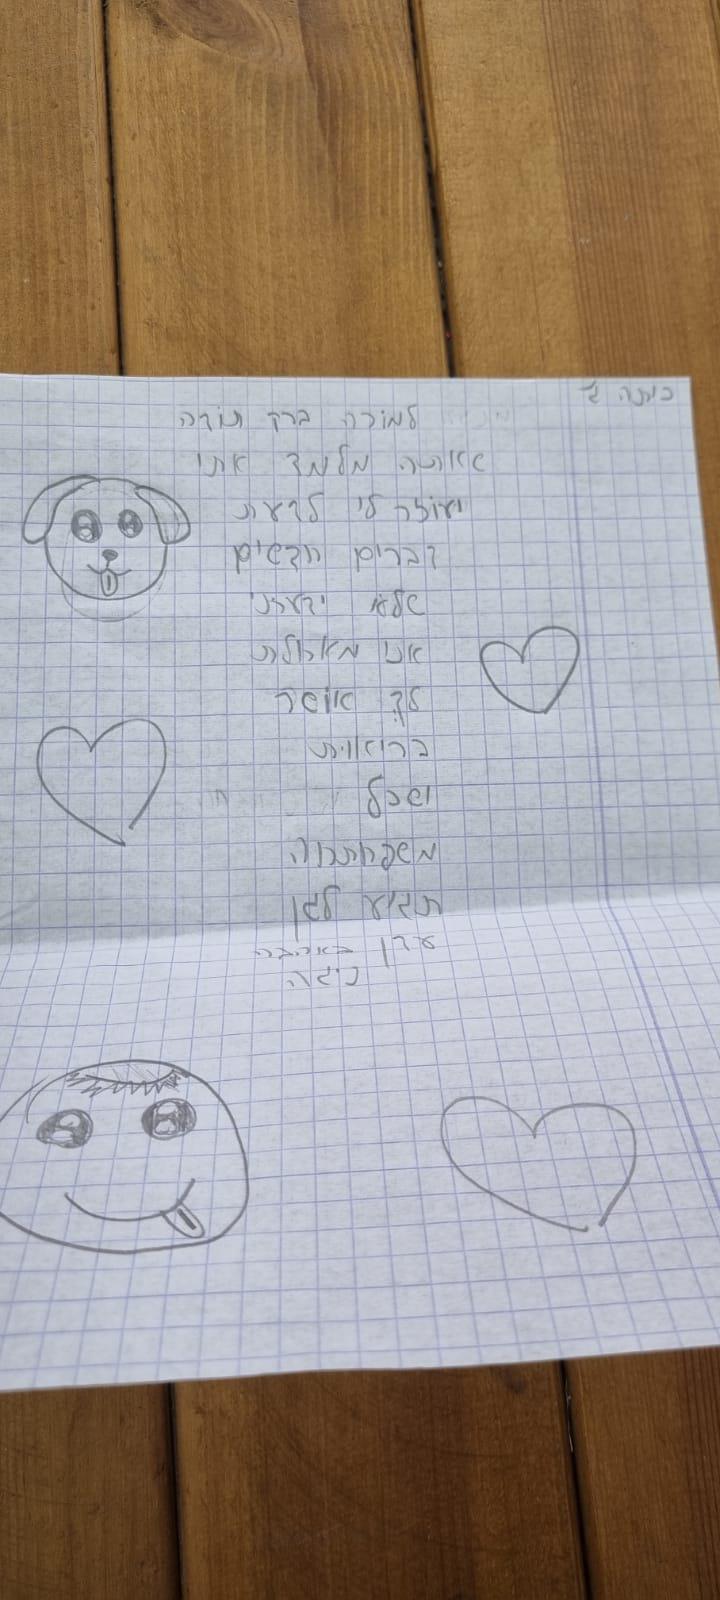 כיתה ג'
למורה ברק תודה
שאתה מלמד אתי
ועוזר לי לדעת
דברים חדשים
שלא ידעתי
אני מאחלת
לך אושר
בריאות
ושכל
משפחתחה
תגיע לגן
עדן באהבה